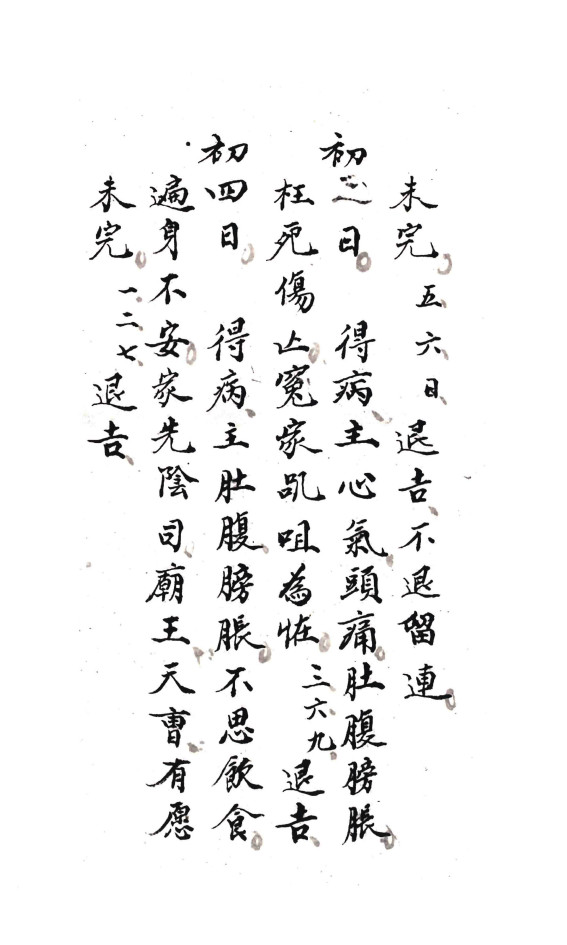 未完五六日退吉不退留連
初三日得病主心氣頭痛肚腹膀脹
枉死傷亡冤家咒咀為恠三六九退吉
初四日得病主肚腹膀脹不思飲食
遍身不安家先陰司廟王天曹有愿
未完一二七退吉